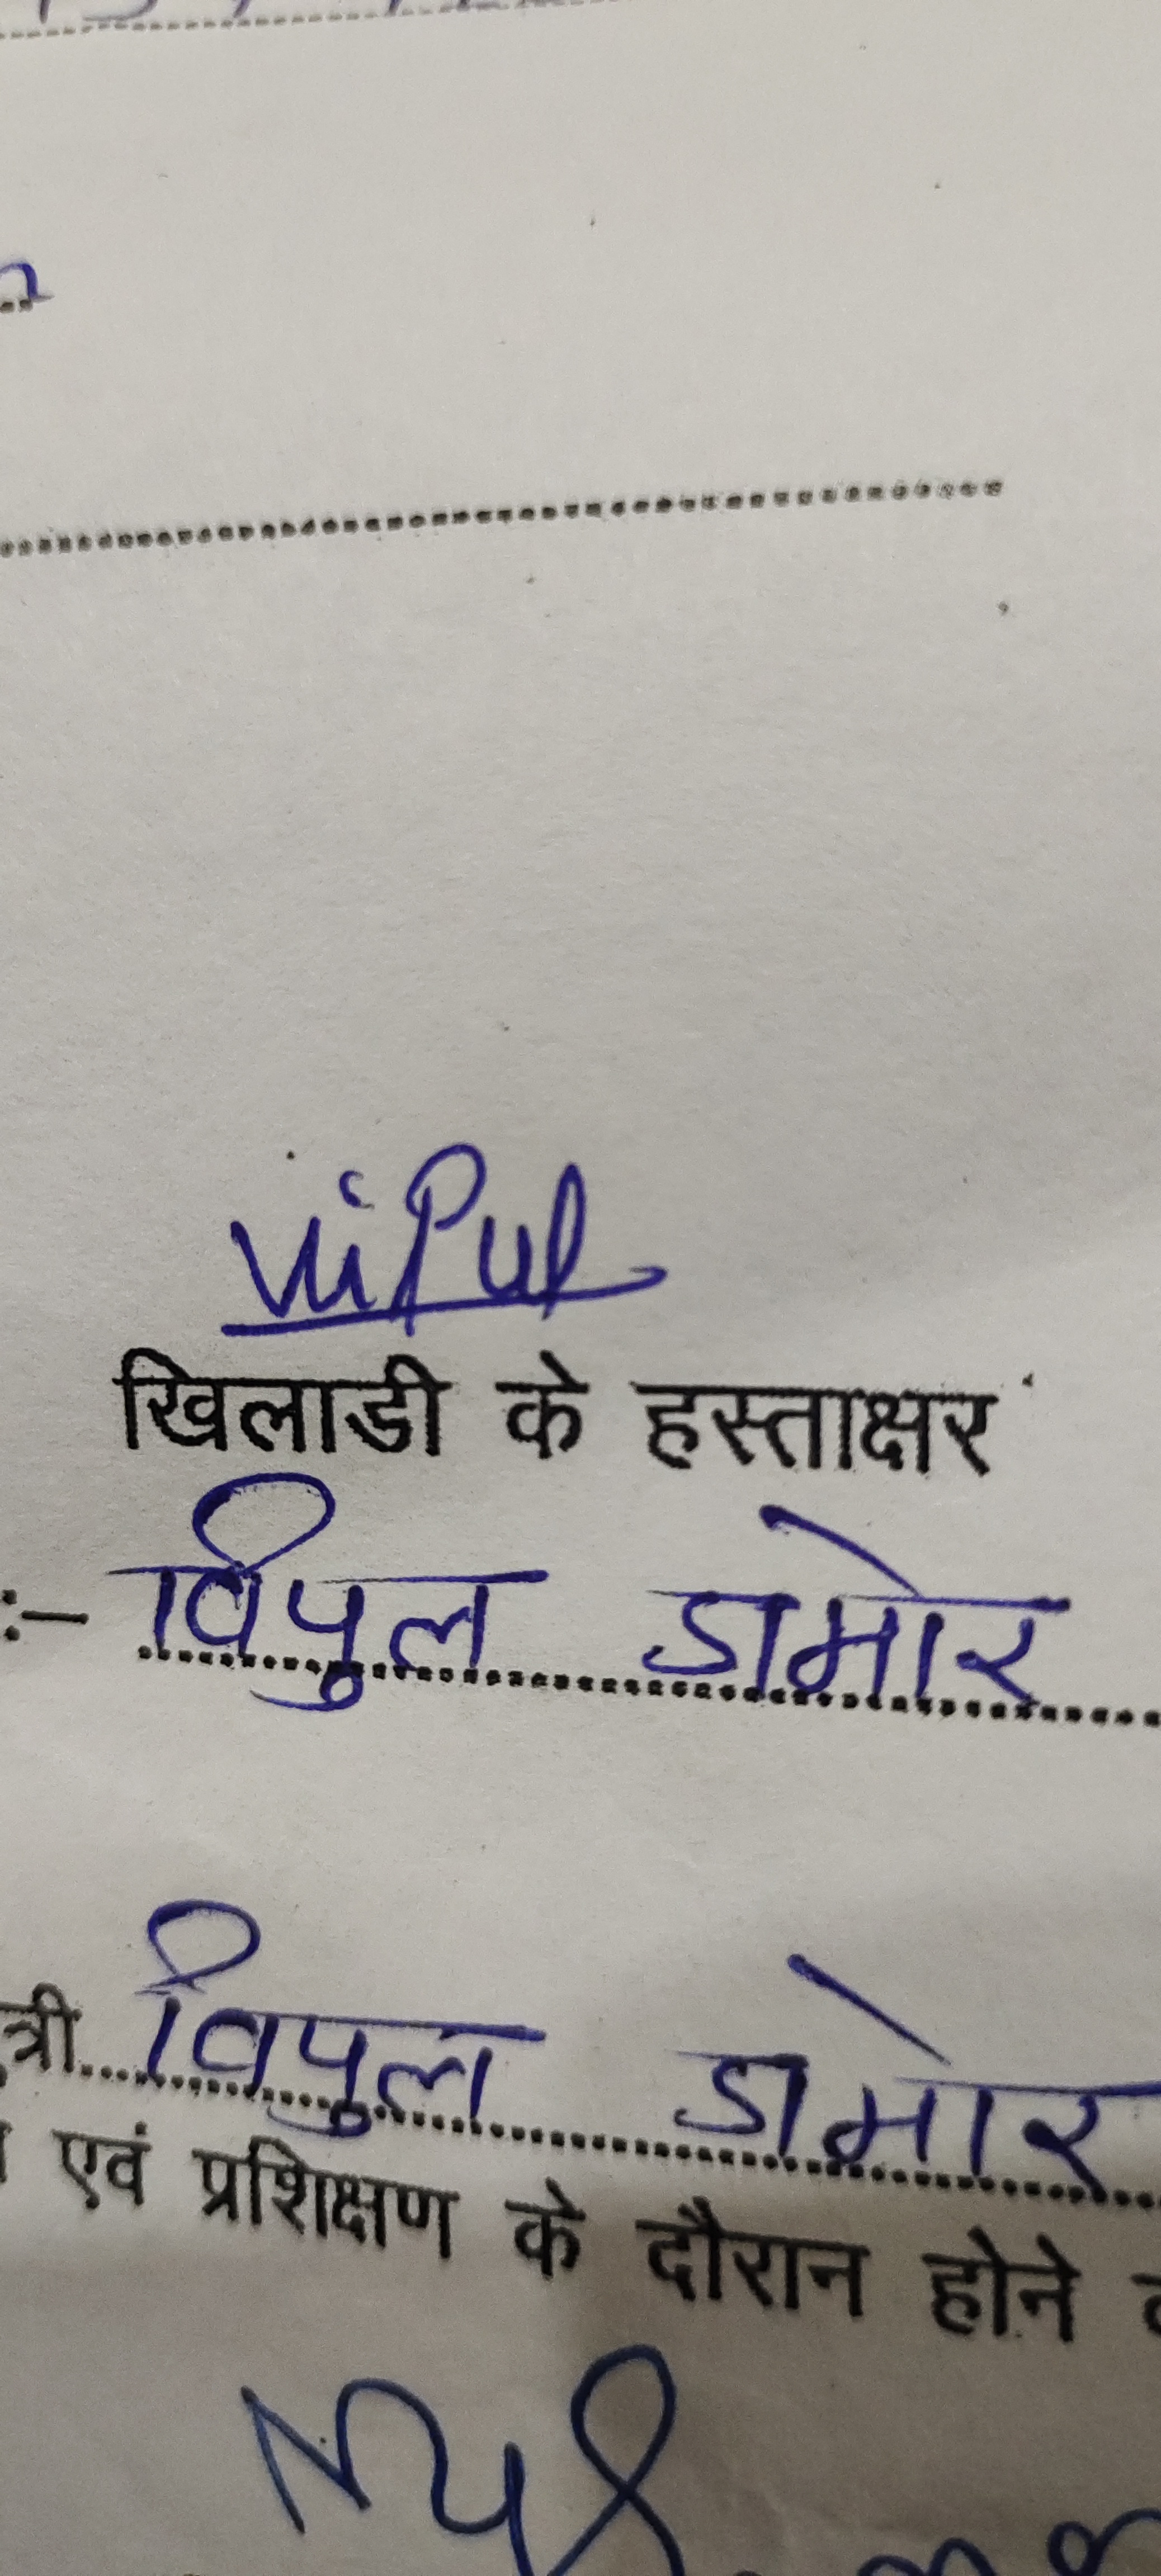 ViPul
खिलाडी के हस्ताक्षर
:– विपुल डामोर
त्री विपुल डामोर
एवं प्रशिक्षण के दौरान होने